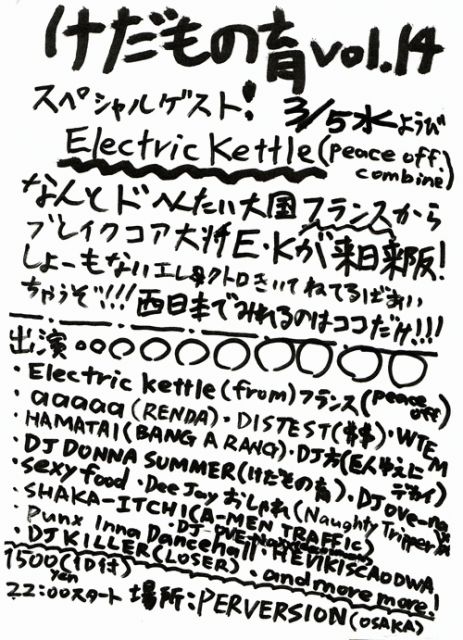 けだもの育 vol.14
スペシャルゲスト! 3/5水ようび
Electric Kettle (peace off. combine)
なんとドへんたい大国フランスから
ブレイクコア大将E・Kが来日来阪!
しょーもないエレクトロきいてねてるばあい
ちゃうぞ!!! 西日本でみれるのはココだけ!!!
出演
・Electric kettle (from) フランス (peace off)
・aaaaa (RENDA)・DISTEST ($$)・WTEM
・HAMATAI (BANG A RANG)・DJ方 (巨人ゆえにデカイ)
・DJ DONNA SUMMER (けだもの育)・DJ OVe-Na
・sexy food・Dee Jay おしゃれ (Naughty Tripper)
・SHAKA-ITCHI (A-MEN TRAFFIC)
・Punx Inna Dancehall・HEVIKISCAODWA!
・DJ KILLER (LOSER) : and more more!
1500yen (1D付)
22:00スタート 場所:PERVERSION (OSAKA)